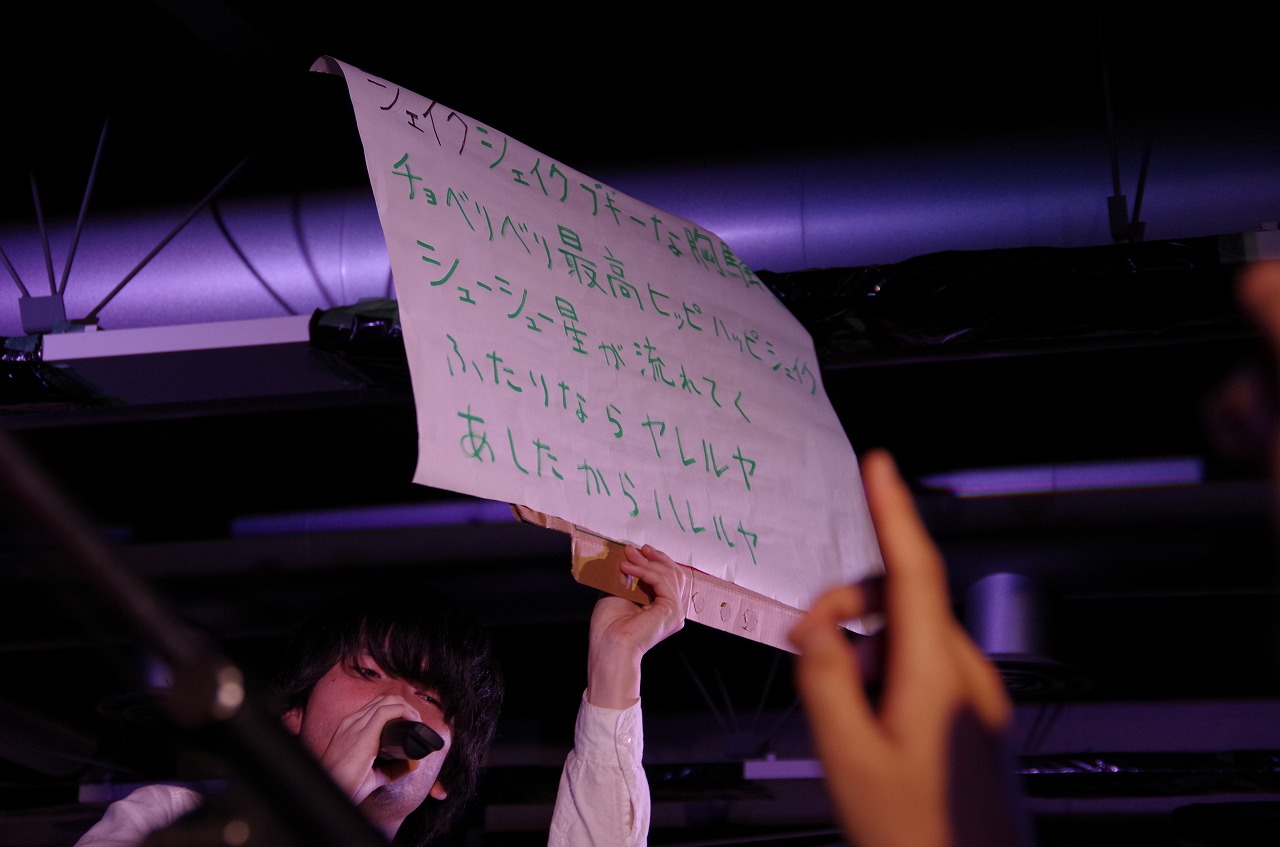 シェイクシェイクブギーな胸騒
チョベリベリ最高ヒッピハッピシェイク
シューシュー星が流れてく
ふたりならヤレルヤ
あしたからハレルヤ